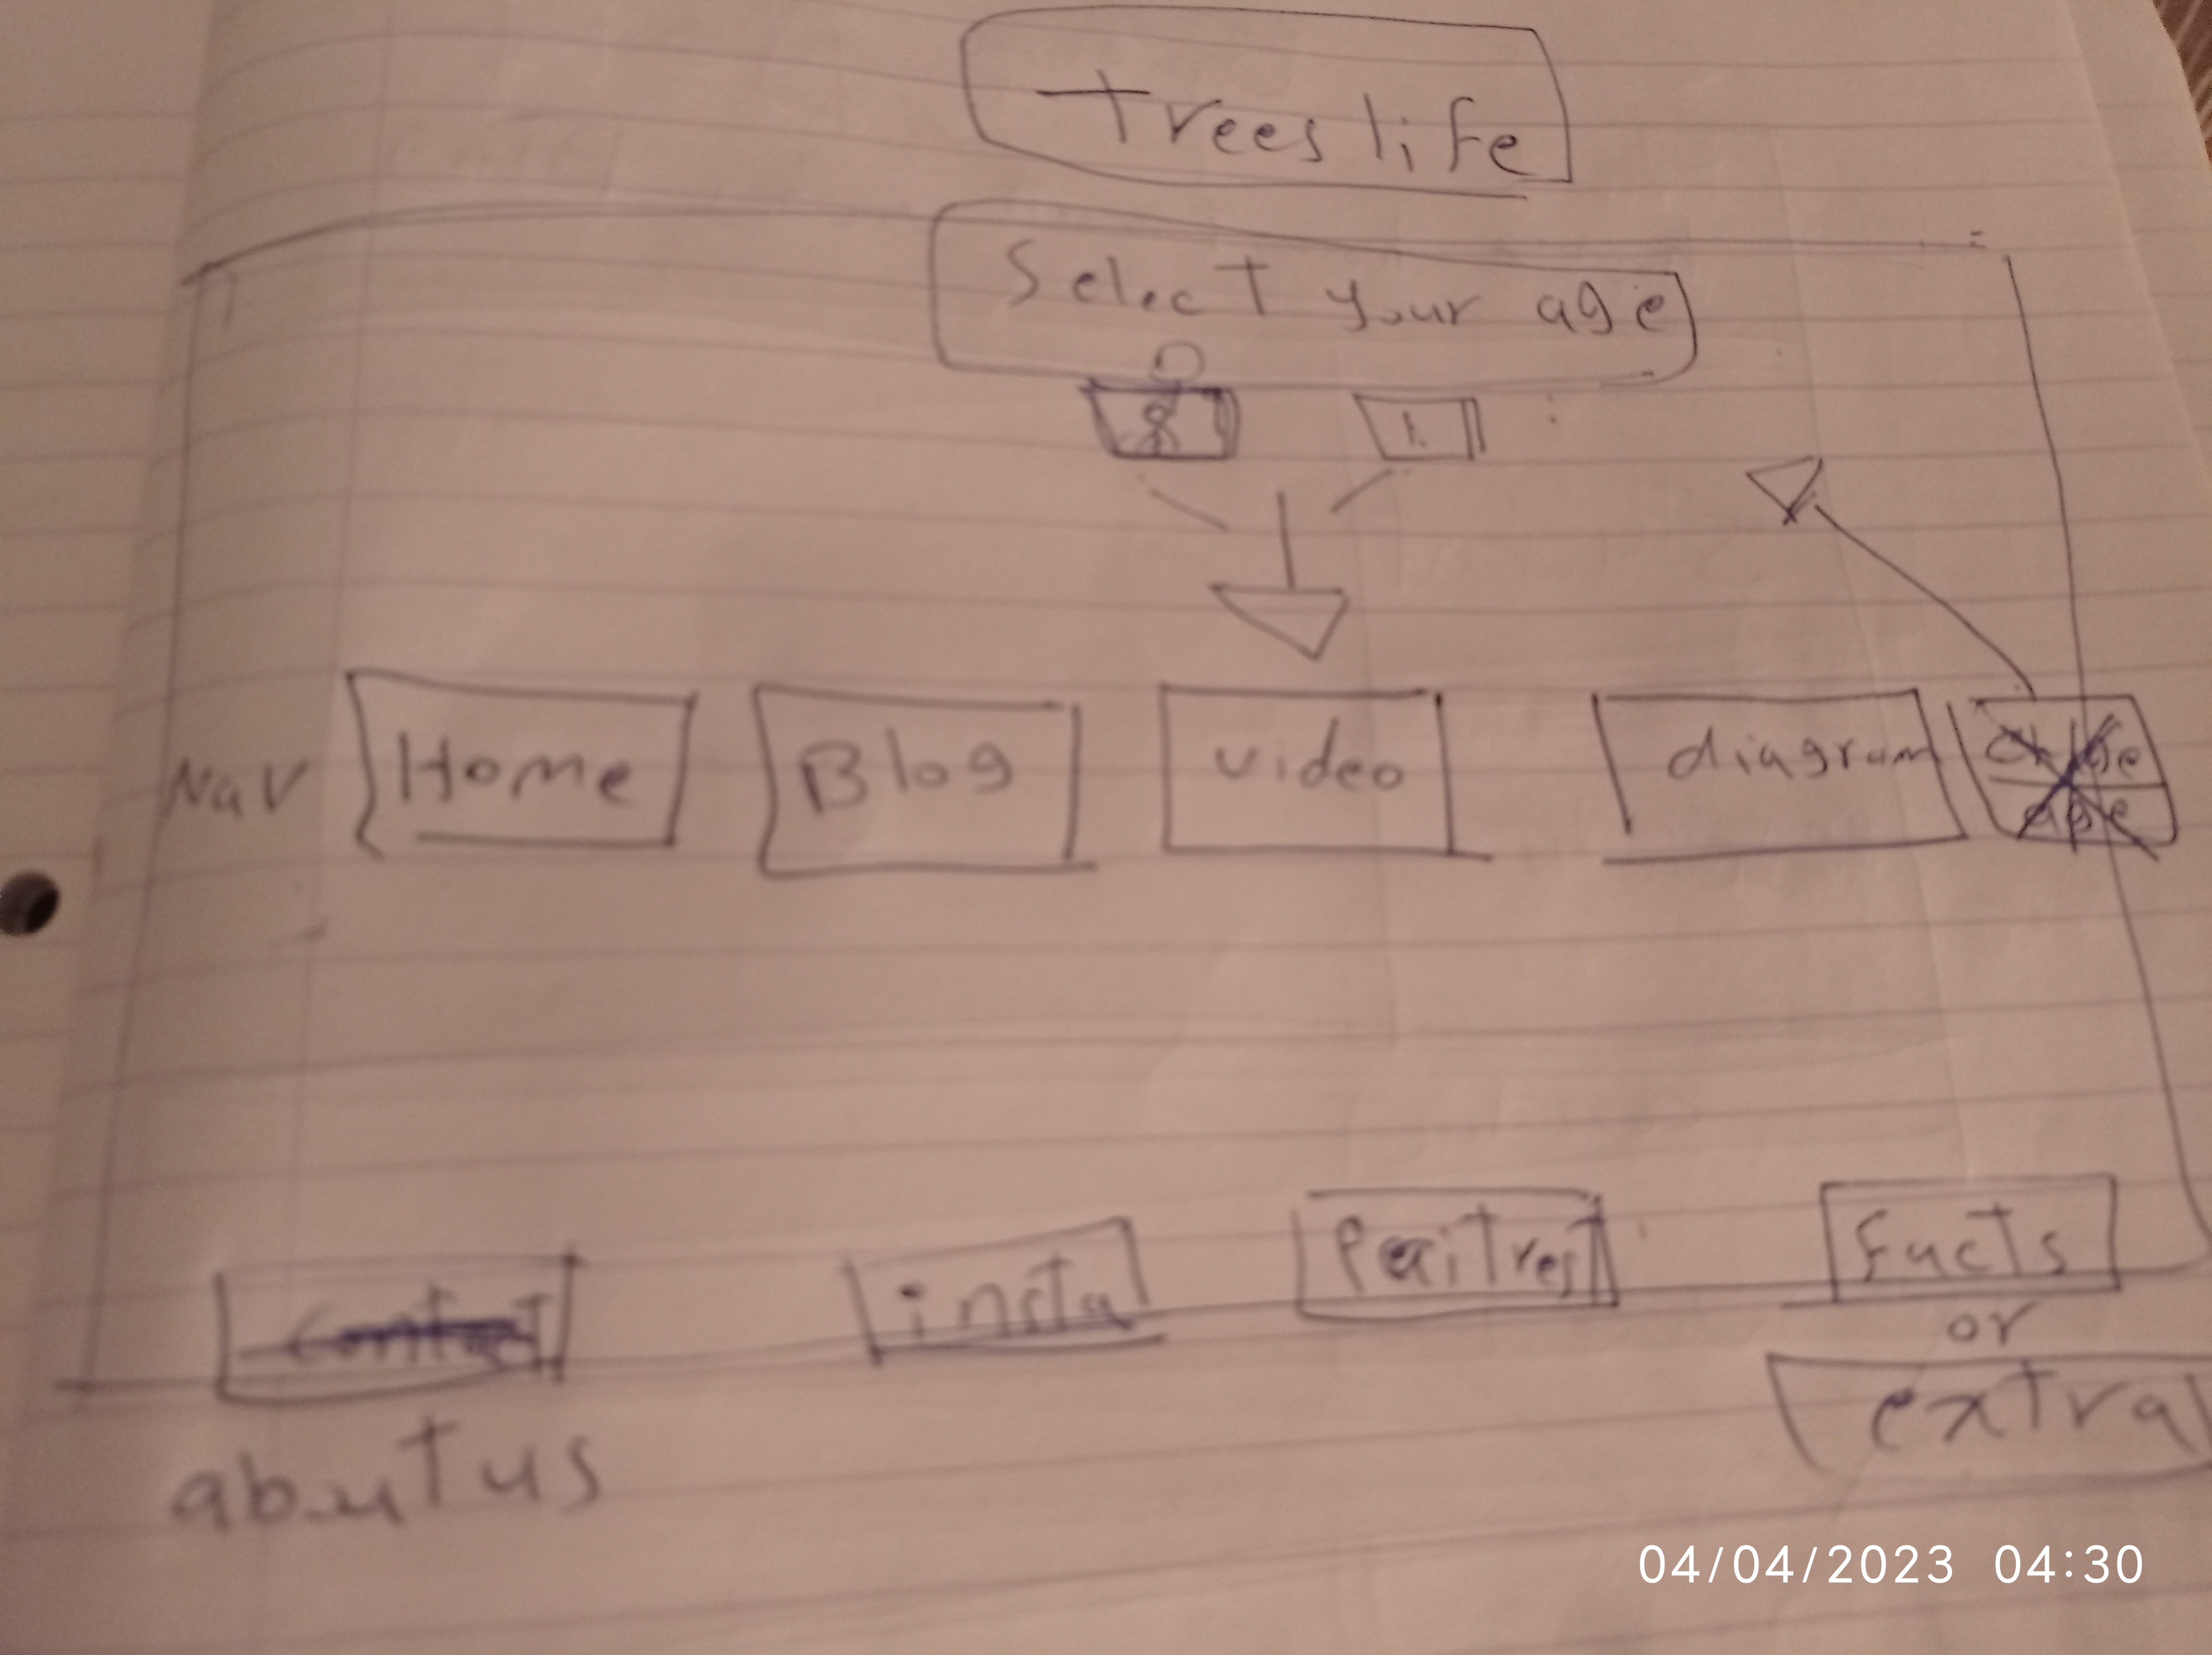 Trees life
Select your age
Nav Home Blog video diagram
insta Peritrest Facts
or
extra
abutus
04/04/2023 04:30